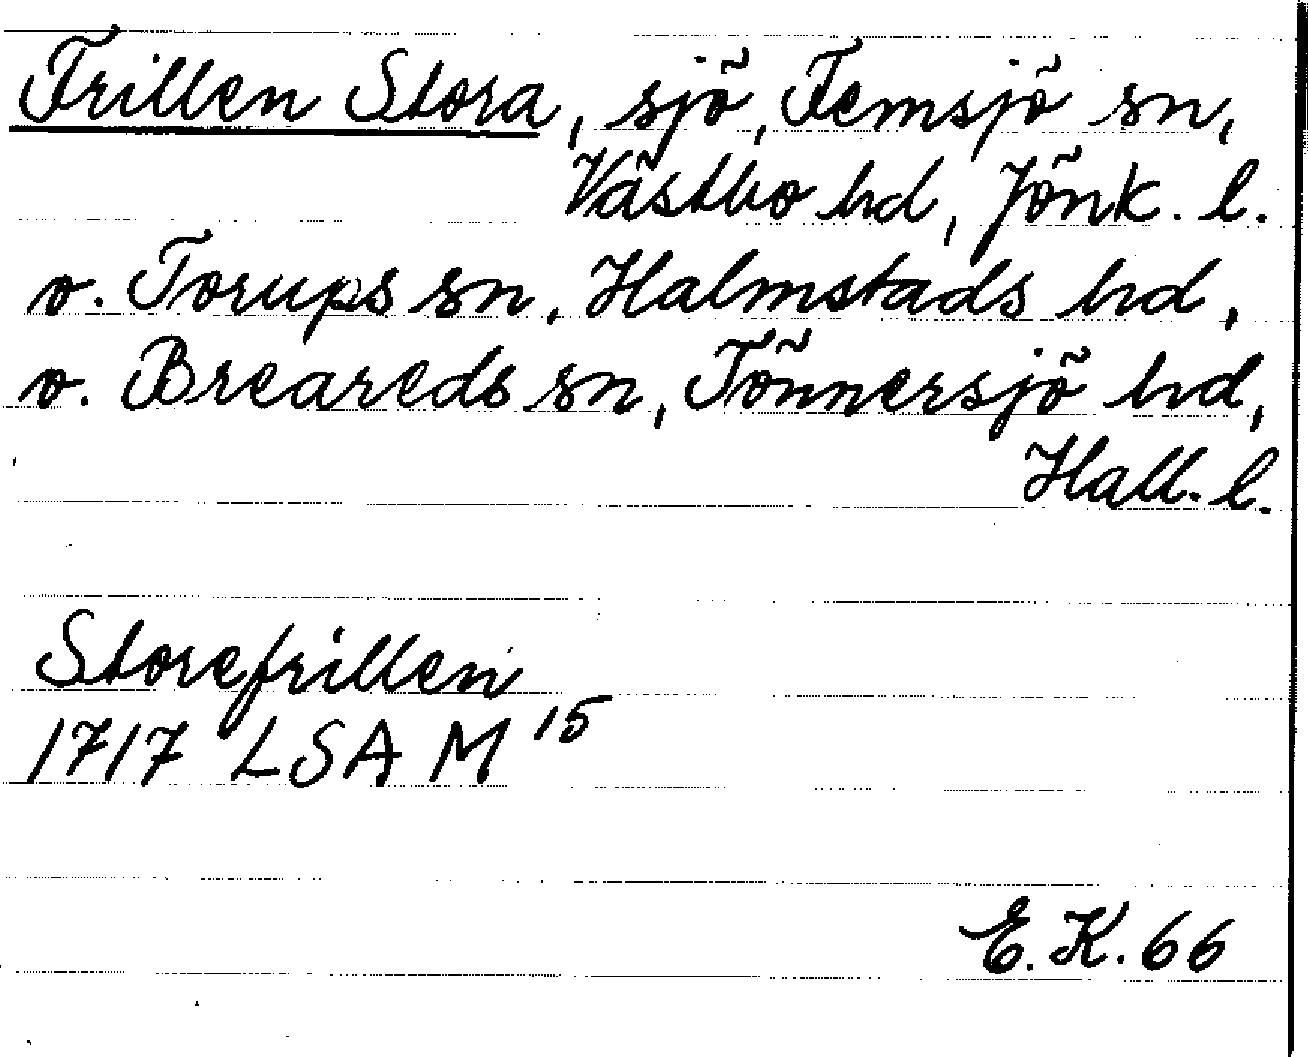 Frillen Stora, sjö, Femsjö sn,
Västbo hd, Jönk. l.
o. Torups sn, Halmstads hd,
o. Breareds sn, Tönnersjö hd,
Hall. l.
Storefrillen
1717 LSA M 15
E. K. 66